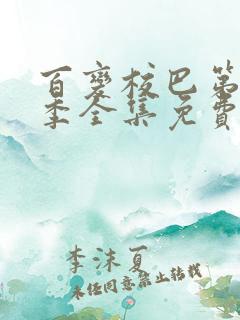 百变校巴第
季全集免费
李沫夏
未经同意禁止转载